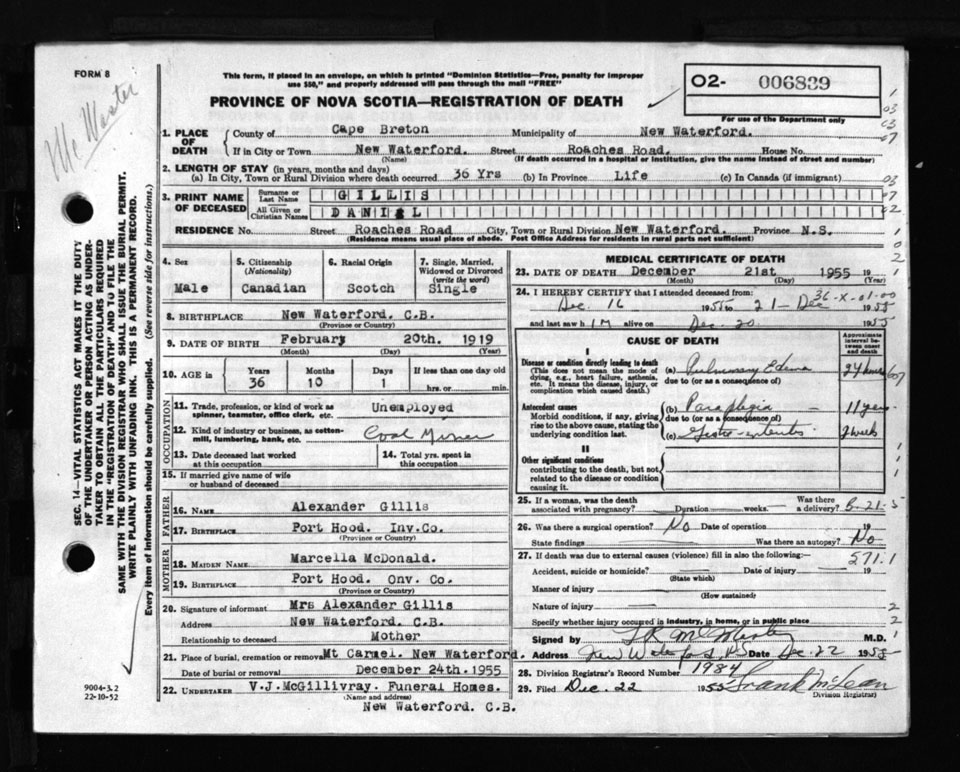 FORM 8
This form, if placed in an envelope, on which is printed "Dominion Statistics—Free, penalty for improper
use $50," and properly addressed will pass through the mail "FREE"
O2- 006839
For use of the Department only
PROVINCE OF NOVA SCOTIA—REGISTRATION OF DEATH
SEC. 14—VITAL STATISTICS ACT MAKES IT THE DUTY
OF THE UNDERTAKER OR PERSON ACTING AS UNDER-
TAKER TO OBTAIN ALL THE PARTICULARS REQUIRED
IN THE "REGISTRATION OF DEATH" AND TO FILE THE
SAME WITH THE DIVISION REGISTRAR WHO SHALL ISSUE THE BURIAL PERMIT.
WRITE PLAINLY WITH UNFADING INK. THIS IS A PERMANENT RECORD.
Every item of information should be carefully supplied. (See reverse side for instructions.)
1. PLACE OF DEATH
County of Cape Breton Municipality of New Waterford.
If in City or Town New Waterford. Street Roaches Road. House No.
(Name) (If death occurred in a hospital or institution, give the name instead of street and number)
2. LENGTH OF STAY (in years, months and days)
(a) In City, Town or Rural Division where death occurred 36 Yrs (b) In Province Life (c) In Canada (if immigrant)
3. PRINT NAME OF DECEASED
Surname or Last Name GILLIS
All Given or Christian Names DANIEL
RESIDENCE No. Street Roaches Road City, Town or Rural Division New Waterford. Province N.S.
(Residence means usual place of abode. Post Office Address for residents in rural parts not sufficient)
4. Sex
Male
5. Citizenship
(Nationality)
Canadian
6. Racial Origin
Scotch
7. Single, Married,
Widowed or Divorced
(write the word)
Single
8. BIRTHPLACE New Waterford. C.B.
(Province or Country)
9. DATE OF BIRTH February 20th. 1919
(Month) (Day) (Year)
10. AGE in Years Months Days If less than one day old
36 10 1 hrs. or min.
OCCUPATION
11. Trade, profession, or kind of work as
spinner, teamster, office clerk, etc. Unemployed
12. Kind of industry or business, as cotten-
mill, lumbering, bank, etc. Coal Miner
13. Date deceased last worked
at this occupation
14. Total yrs. spent in
this occupation
15. If married give name of wife
or husband of deceased
FATHER
16. Name Alexander Gillis
17. Birthplace Port Hood. Inv.Co.
(Province or Country)
MOTHER
18. Maiden Name Marcella McDonald.
19. Birthplace Port Hood. Onv. Co.
(Province or Country)
20. Signature of informant Mrs Alexander Gillis
Address New Waterford. C.B.
Relationship to deceased Mother
21. Place of burial, cremation or removal Mt Carmel. New Waterford.
Date of burial or removal December 24th.1955
22. UNDERTAKER V.J.McGillivray. Funeral Homes.
(Name and address)
New Waterford. C.B.
9004-3.2
22-10-52
MEDICAL CERTIFICATE OF DEATH
23. DATE OF DEATH December 21st 1955 19
(Month) (Day)
24. I HEREBY CERTIFY that I attended deceased from:
36-X-01-00
Dec 16 1955 to 21-Dec 1955
and last saw him alive on Dec. 20 1955
CAUSE OF DEATH
Approximate
interval be-
tween onset
and death
I
Disease or condition directly leading to death
(This does not mean the mode of
dying, e.g., heart failure, asthenia,
etc. It means the disease, injury, or
complication which caused death.)
(a) Pulmonary Edema 24 hours
due to (or as a consequence of)
Antecedent causes
Morbid conditions, if any, giving
rise to the above cause, stating the
underlying condition last.
(b) Paraplegia 11 years
due to (or as a consequence of)
(c) Gastro-enteritis week
II
Other significant conditions
contributing to the death, but not
related to the disease or condition
causing it.
25. If a woman, was the death
associated with pregnancy? Duration weeks. Was there
a delivery? B-21-5
26. Was there a surgical operation? No Date of operation 19
State findings Was there an autopsy? No
27. If death was due to external causes (violence) fill in also the following:— 571.1
Accident, suicide or homicide? Date of injury 19
(State which)
Manner of injury
(How sustained)
Nature of injury
Specify whether injury occurred in industry, in home, or in public place
Signed by M.D.
Address New Waterford, NS Date Dec. 22 1955
28. Division Registrar's Record Number 1984
29. Filed Dec. 22 1955 Frank McLean
Division Registrar)